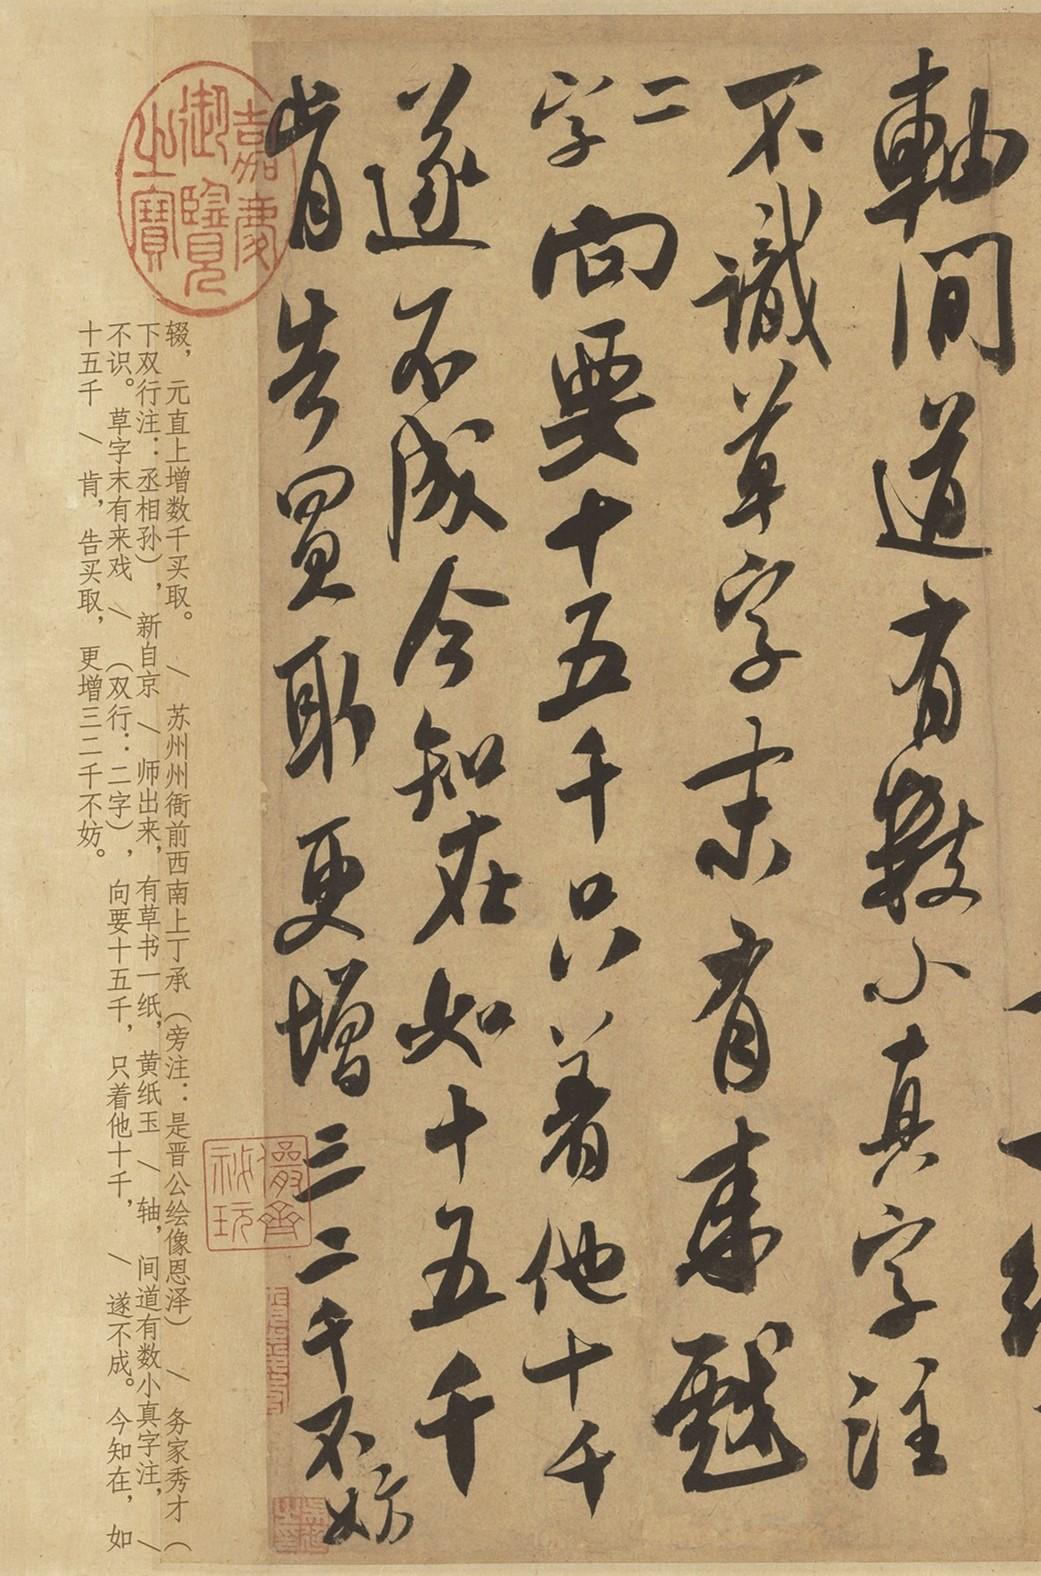 軸間道有數小真字注
不識草字末有来戯
二
字向要十五千只著他十千
遂不成今知在如十五千
肯告買取更增三二千不妨
嘉慶
御覽
之寶
儼齋
祕玩
辍，元直上增数千买取。 / 苏州州衙前西南上丁承（旁注：是晋公绘像恩泽） / 务家秀才（
下双行注：丞相孙），新自京 / 师出来，有草书一纸，黄纸玉 / 轴，间道有数小真字注， /
不识。草字末有来戏 / （双行：二字），向要十五千，只着他十千， / 遂不成。今知在，如
十五千 / 肯，告买取，更增三二千不妨。